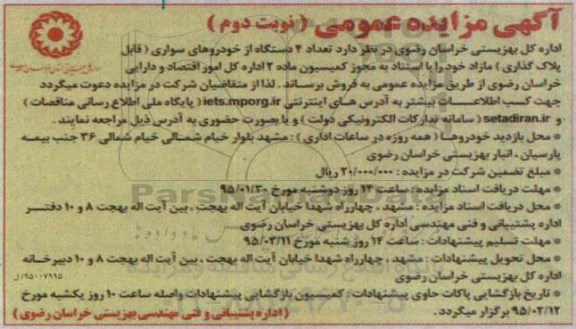 آگهی مزایده عمومی ( نوبت دوم )
اداره کل بهزیستی خراسان رضوی در نظر دارد تعداد ۴ دستگاه از خودروهای سواری ( قابل
پلاک گذاری ) مازاد خود را با استناد به مجوز کمیسیون ماده ۲ اداره کل امور اقتصاد و دارایی
خراسان رضوی از طریق مزایده عمومی به فروش برساند . لذا از متقاضیان شرکت در مزایده دعوت میگردد
جهت کسب اطلاعات بیشتر به آدرس های اینترنتی iets.mporg.ir ( پایگاه ملی اطلاع رسانی مناقصات )
و setadiran.ir ( سامانه تدارکات الکترونیکی دولت ) و یا بصورت حضوری به آدرس ذیل مراجعه نمایند .
* محل بازدید خودروها ( همه روزه در ساعات اداری ) : مشهد بلوار خیام شمالی خیام شمالی ۳۶ جنب بیمه
پارسیان ، انبار بهزیستی خراسان رضوی
* مبلغ تضمین شرکت در مزایده : ۲۰/۰۰۰/۰۰۰ ریال
* مهلت دریافت اسناد مزایده : ساعت ۱۴ روز دوشنبه مورخ ۹۵/۰۱/۳۰
* محل دریافت اسناد مزایده : مشهد ، چهارراه شهدا خیابان آیت اله بهجت ، بین آیت اله بهجت ۸ و ۱۰ دفتر
اداره پشتیبانی و فنی مهندسی اداره کل بهزیستی خراسان رضوی
* مهلت تسلیم پیشنهادات : ساعت ۱۴ روز شنبه مورخ ۹۵/۰۲/۱۱
* محل تحویل پیشنهادات : مشهد ، چهارراه شهدا خیابان آیت اله بهجت ، بین آیت اله بهجت ۸ و ۱۰ دبیرخانه
اداره کل بهزیستی خراسان رضوی
۹۵۰۰۷۹۹۵/ل
* تاریخ بازگشایی پاکات حاوی پیشنهادات : کمیسیون بازگشایی پیشنهادات واصله ساعت ۱۰ روز یکشیه مورخ
۹۵/۰۲/۱۲ برگزار میگردد .
( اداره پشتیبانی و فنی مهندسی بهزیستی خراسان رضوی )